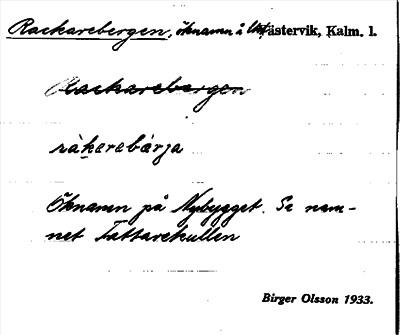 Rackarebergen, öknamn å Västervik, Kalm. l.
Rackarebergen
räkerebärja
Öknamn på Nybygget. Se nam-
net Tattarekullen
Birger Olsson 1933.